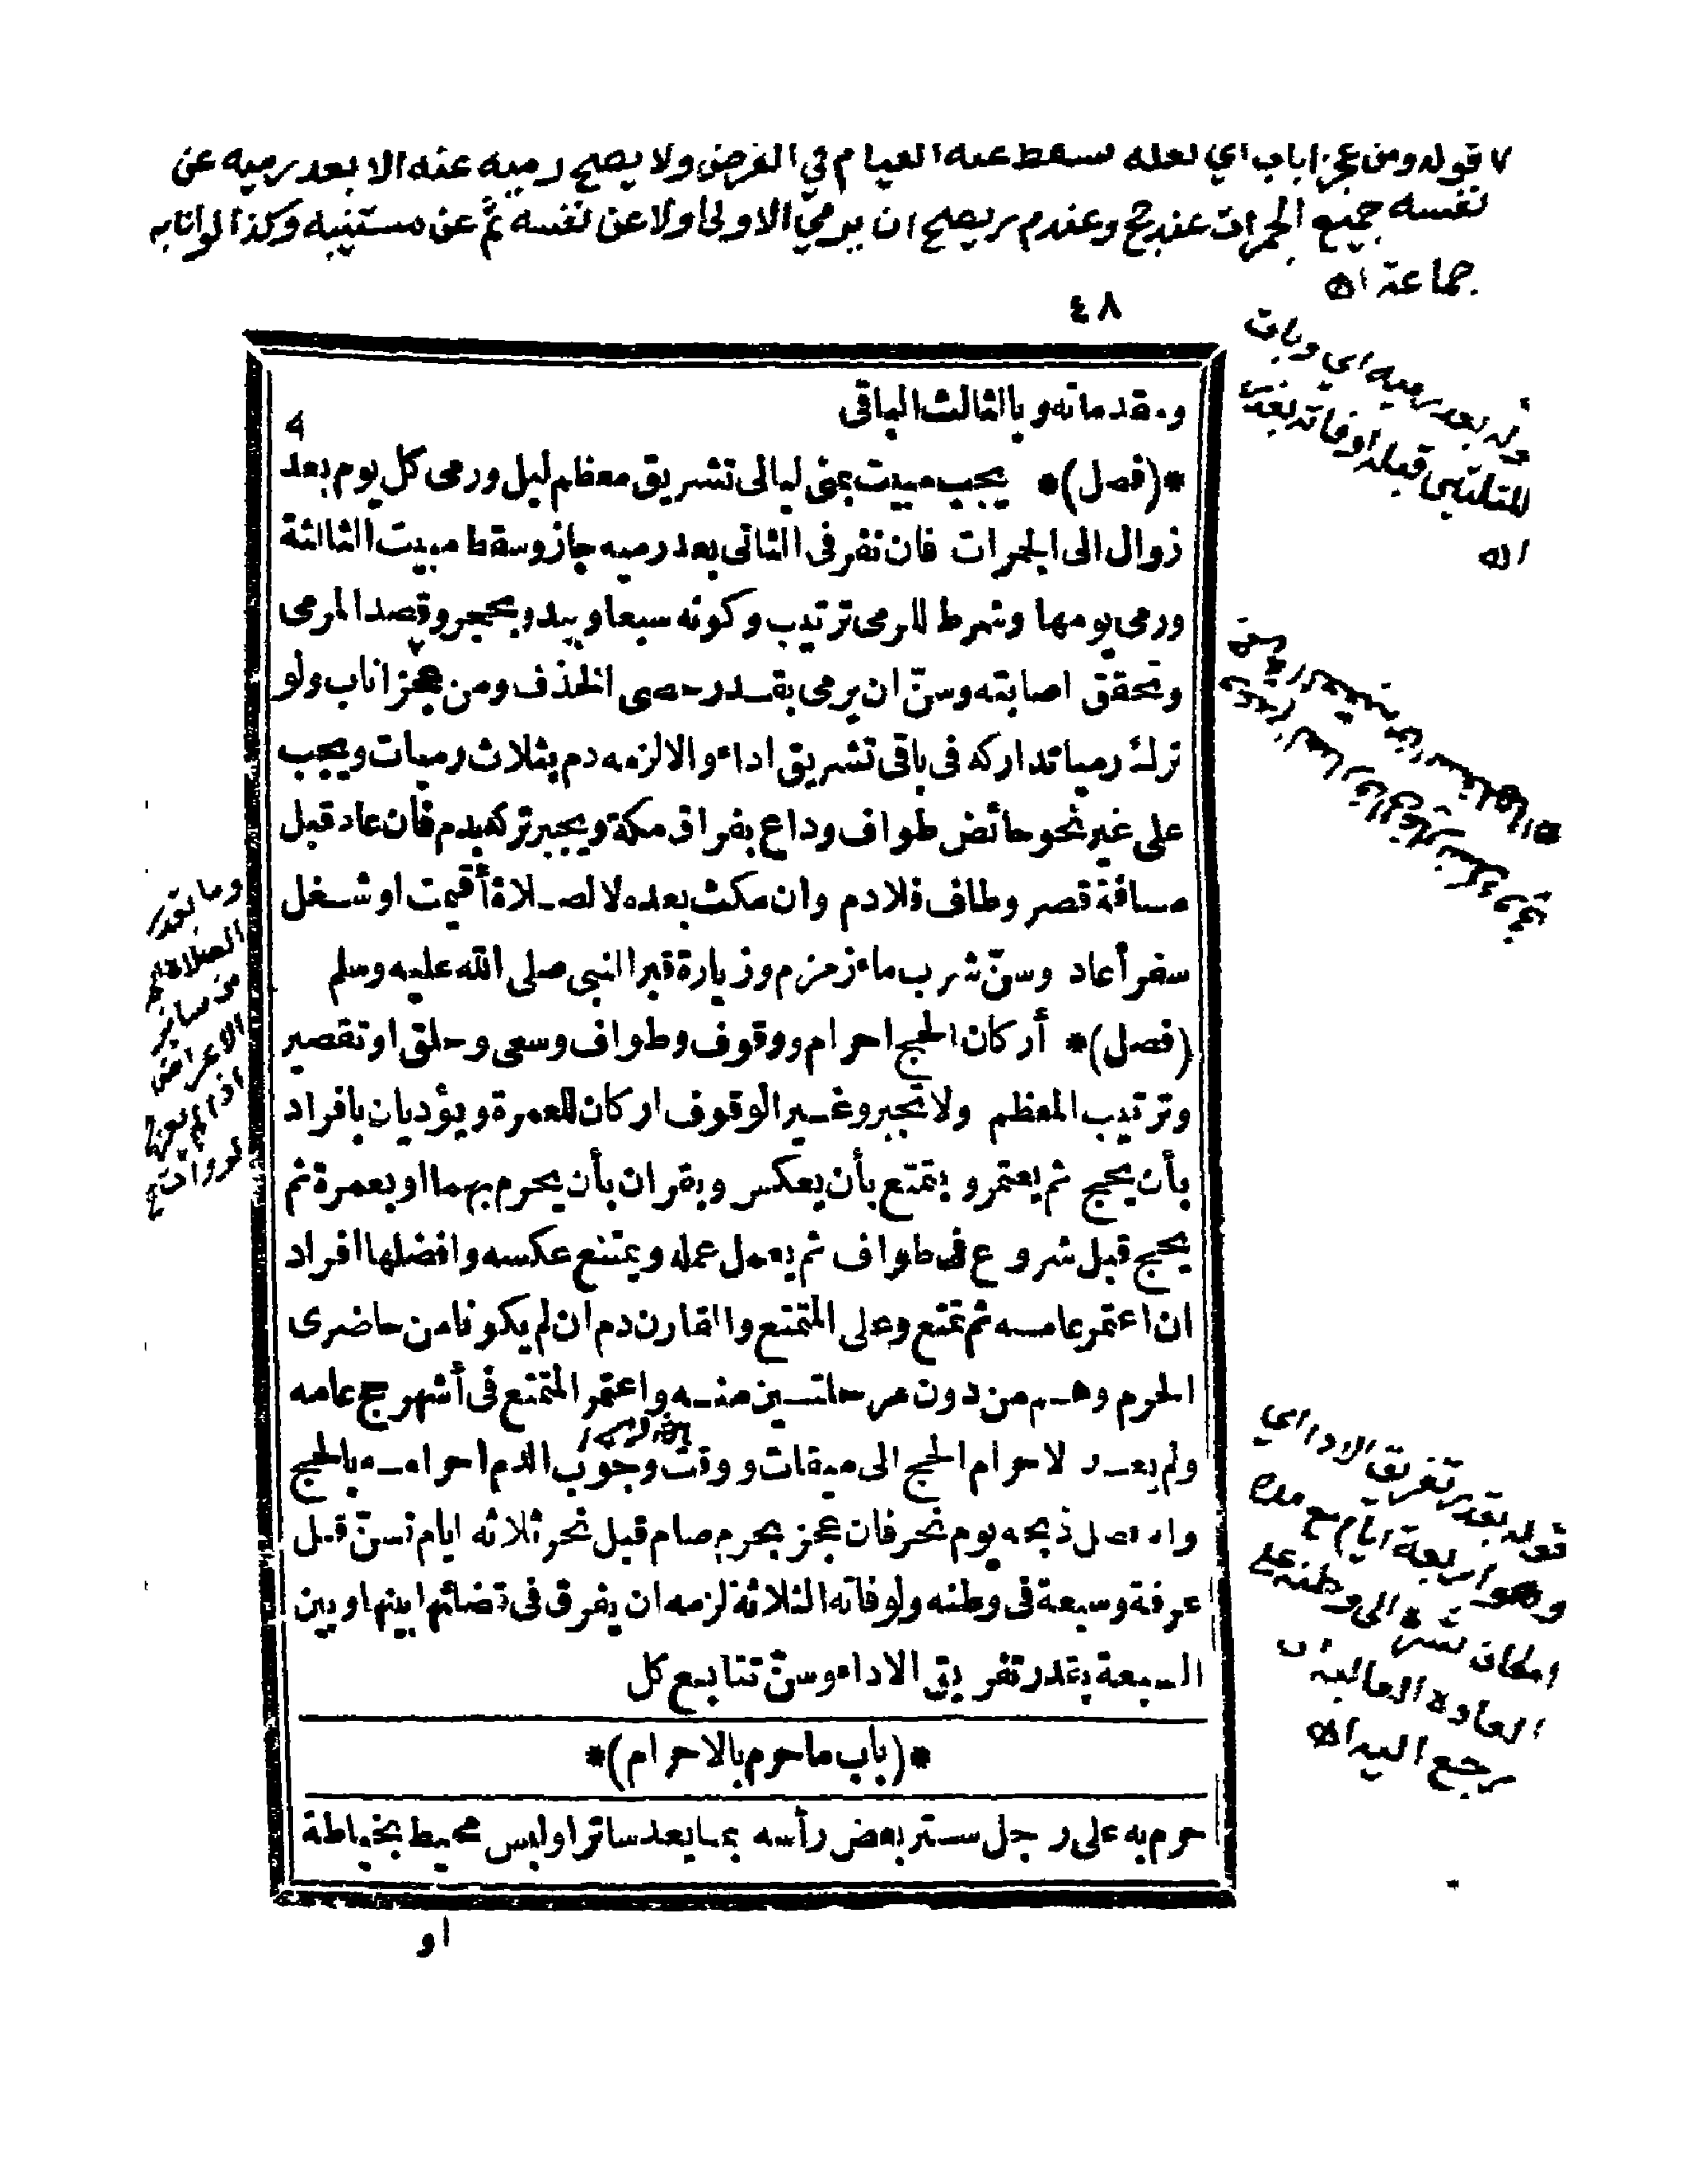 ٧ قوله ومن عجز اناب اي لعلة تسقط عنه القيام في الفرض ولا يصح رميه عنه الا بعد رميه عن
نفسه جميع الجمرات عند حج وعند م ر يصح ان يرمي الاولى اولا عن نفسه ثم عن مستنيبه وكذا لو انابه
جماعة اه
٤٨
ومقدماته وبالثالث الباقى
*(فصل)* يجب مبيت بمنى ليالى تشريق معظم ليل ورمى كل يوم بعد
زوال الى الجمرات فان نفر فى الثانى بعد رميه جاز وسقط مبيت الثالثة
ورمى يومها وشرط للرمى ترتيب وكونه سبعا وبيد وبحجر وقصد المرمى
وتحقق اصابته وسنّ ان يرمى بقدر حصى الخذف ومن عجز اناب ولو
ترك رميا تداركه فى باقى تشريق اداء والا لزمه دم بثلاث رميات ويجب
على غير نحو حائض طواف وداع بفراق مكة ويجبر تركه بدم فان عاد قبل
مسافة قصر وطاف فلا دم وان مكث بعده لا لصلاة أقيمت او شغل
سفر أعاد وسنّ شرب ماء زمزم وزيارة قبر النبى صلى الله عليه وسلم
(فصل)* أركان الحج احرام ووقوف وطواف وسعى وحلق او تقصير
وترتيب المعظم ولا تجبر وغير الوقوف اركان للعمرة ويؤديان بافراد
بأن يحج ثم يعتمر و بتمتع بأن يعكس وبقران بأن يحرم بهما او بعمرة ثم
يحج قبل شروع فى طواف ثم يعمل عمله ويمتنع عكسه وافضلها افراد
ان اعتمر عامه ثم تمتع وعلى المتمتع والقارن دم ان لم يكونا من حاضرى
الحرم وهم من دون مرحلتين منه واعتمر المتمتع فى أشهر حج عامه
ولم يعد لاحرام الحج الى ميقات ووقت وجوب الدم احرامه بالحج
والافضل ذبحه يوم نحر فان عجز بحرم صام قبل نحر ثلاثة ايام تسنّ قبل
عرفة وسبعة فى وطنه ولو فاته الثلاثة لزمه ان يفرق فى قضائها بينها وبين
السبعة بقدر تفريق الاداء وسنّ تتابع كل
*(باب ما حرم بالاحرام)*
حرم به على رجل ستر بعض رأسه بما يعد ساترا ولبس محيط بخياطة
او
قوله بعد رميه اي وبات
اه
قوله بقدر تفريق الاداء اي
وهو اربعة ايام مع مدة
امكان سيره الى وطنه على
العادة الغالبة
رجع اليه اه